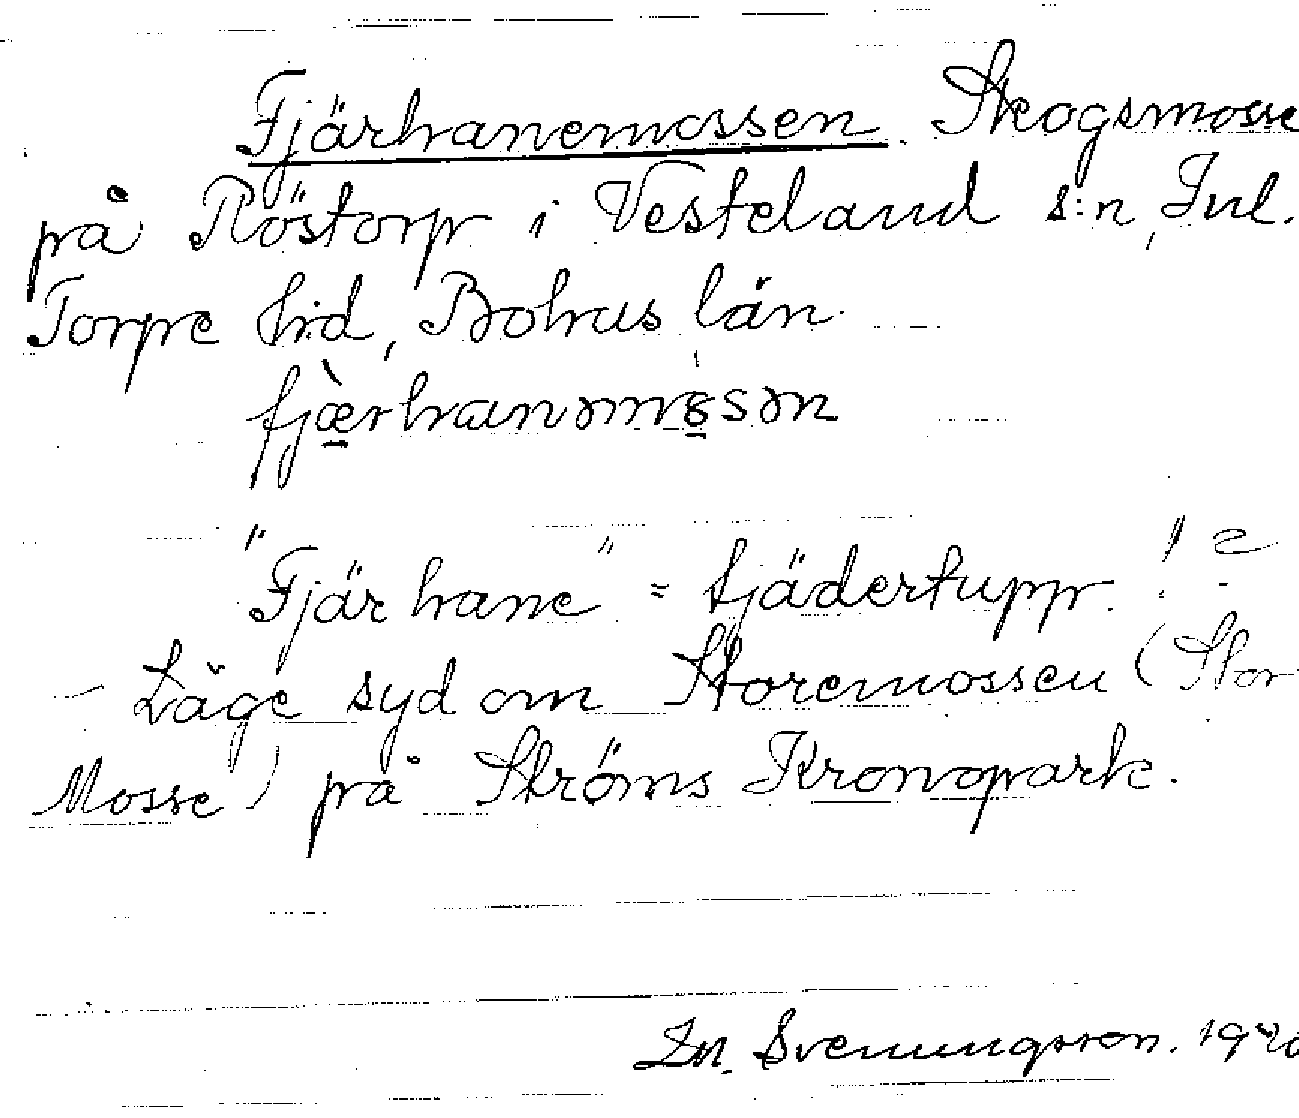 Fjärhanemossen. Skogsmosse
på Röstorp i Vesteland s:n, Inl.
Torpe hd, Bohus län.
"Fjärhane" = fjädertupp. ! ?
- Läge syd om Storemossen (Stor
Mosse) på Ströms Kronopark.
Svenungsson.